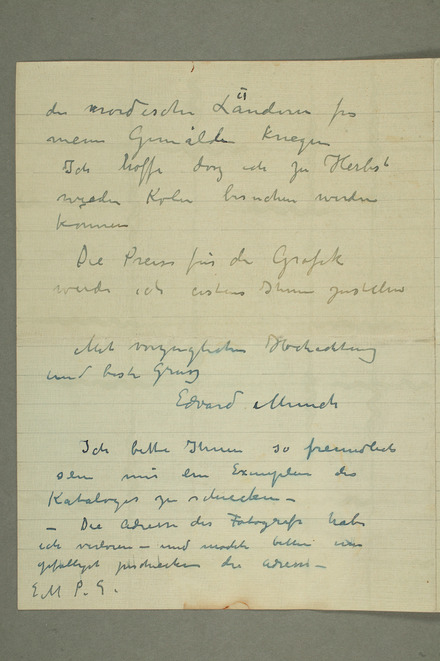 den nordischen Ländern für
meine Gemälde kriegen
Ich hoffe daz ich zu Herbst
wieder Köln besuchen werde
können
Die Preise für die Grafik
werde ich erstens Ihnen zustellen
Mit vorzüglichen Hochachtung
und beste Gruss
Edvard Munch
Ich bitte Ihnen so freundlich
sein mir ein Exemplar des
Kataloges zu schicken –
– Die Adresse des Fotografs habe
ich verloren – und möchte bitten
gefälligst die Adress –
E M P. S.